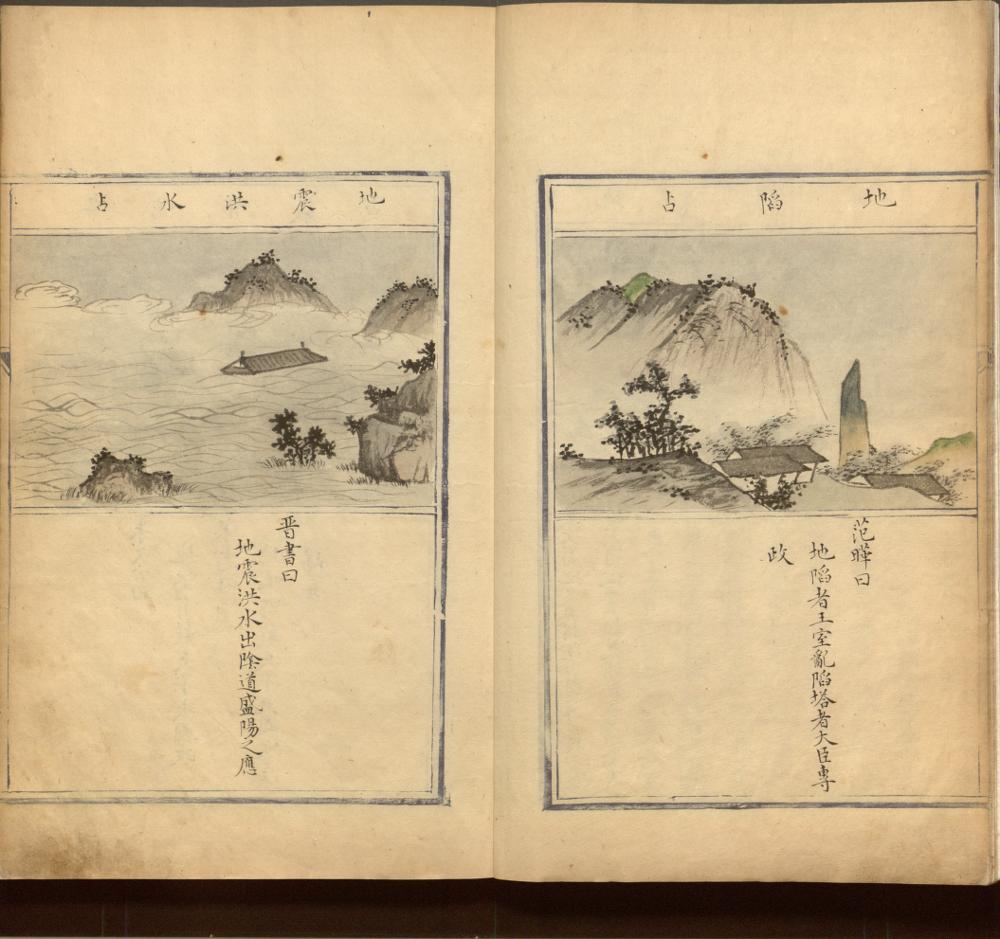 地陷占
范曄曰
地陷者王室亂陷塔者大臣專
政
地震洪水占
晋書曰
地震洪水出陰道盛陽之應